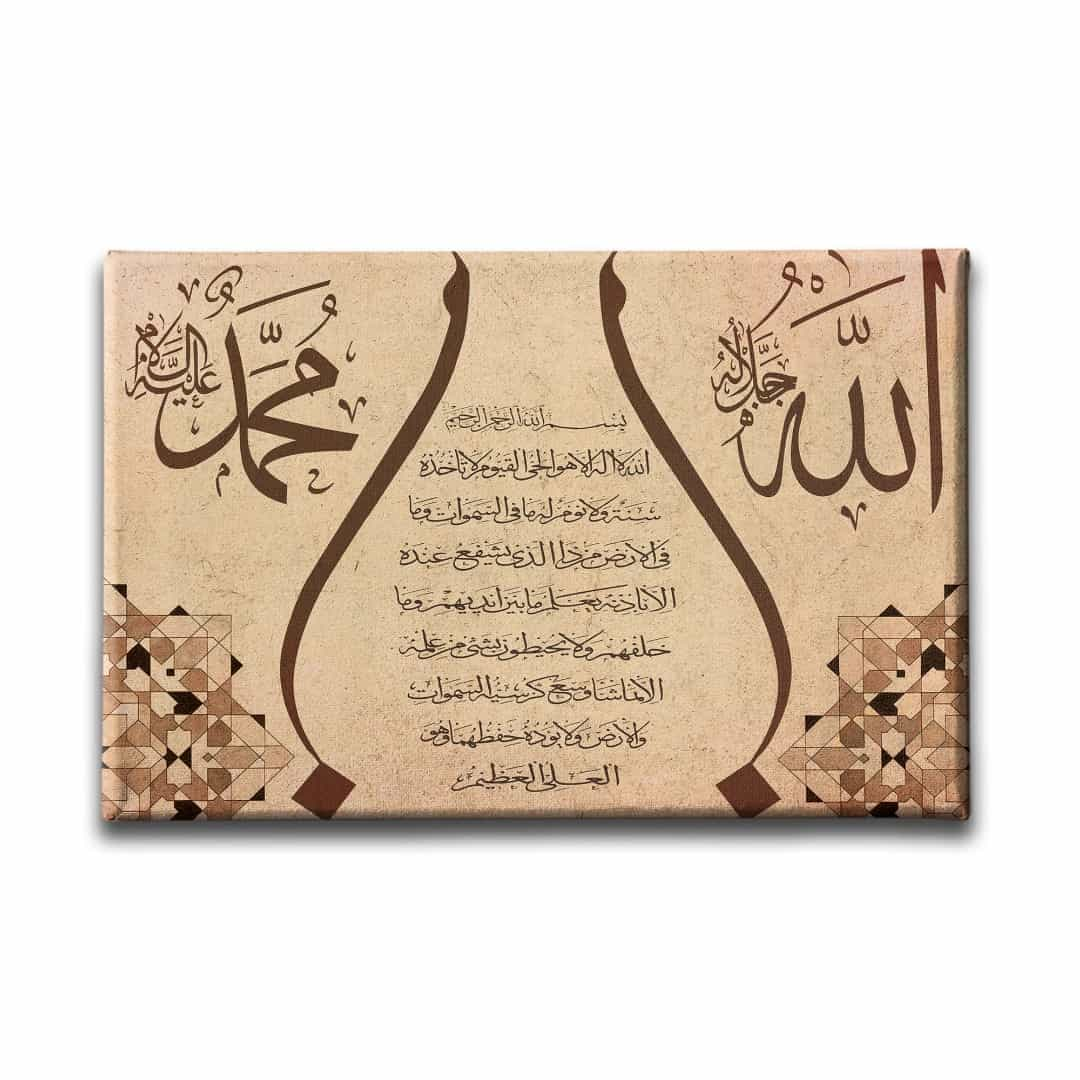 الله
جل جلاله
محمد
عليه السلام
بسم الله الرحمن الرحيم
الله لا اله الا هو الحي القيوم لا تأخذه
سنة ولا نوم له ما في السموات وما
في الارض من ذا الذي يشفع عنده
الا باذنه يعلم ما بين ايديهم وما
خلفهم ولا يحيطون بشئ من علمه
الا بما شاء وسع كرسيه السموات
والارض ولا يؤده حفظهما وهو
العلي العظيم